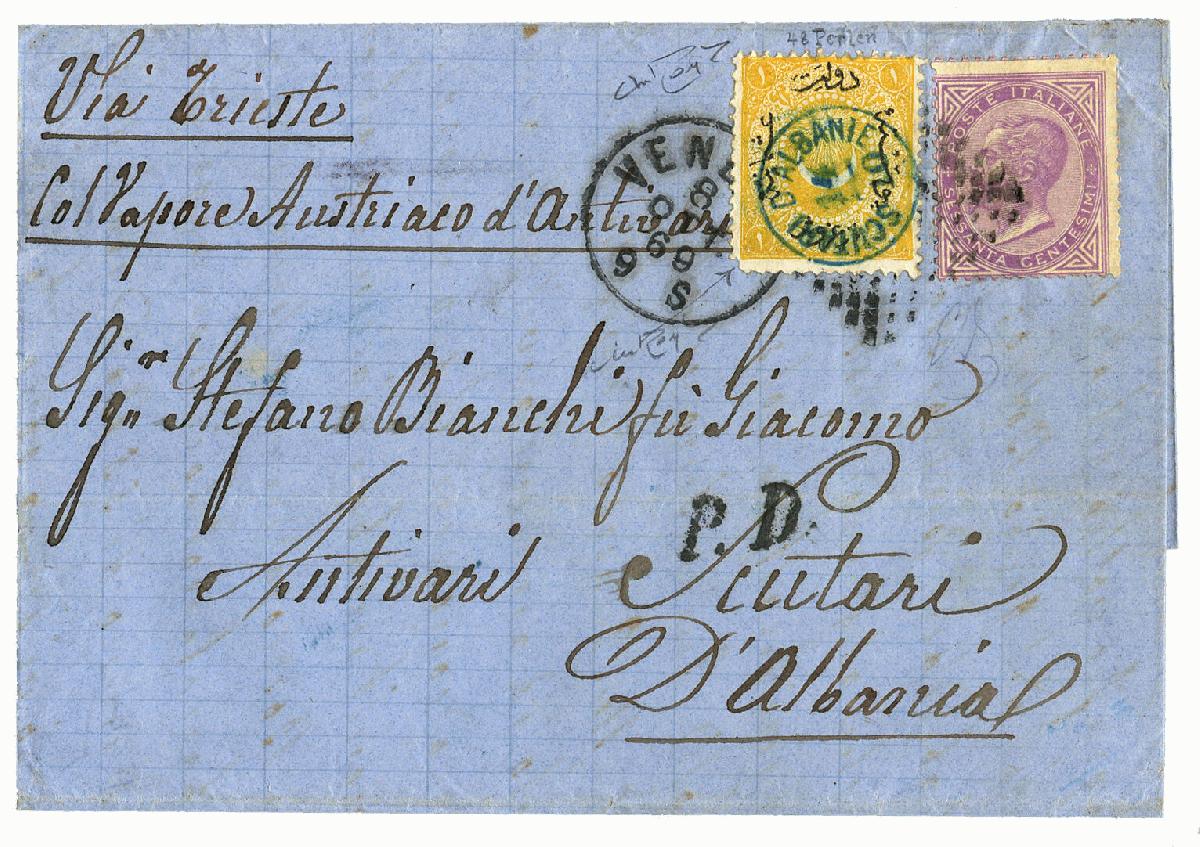 48 Perlen
Via Trieste
Col Vapore Austriaco d'Antivari
VENE
8
69
9 S
١ ١
دولت
١ ١
SCUTARI D'ALBANIE
POSTE ITALIANE
SESSANTA CENTESIMI
Sigʳ Stefano Bianchi fù Giacomo
P.D.
Antivari Scutari
D'Albania